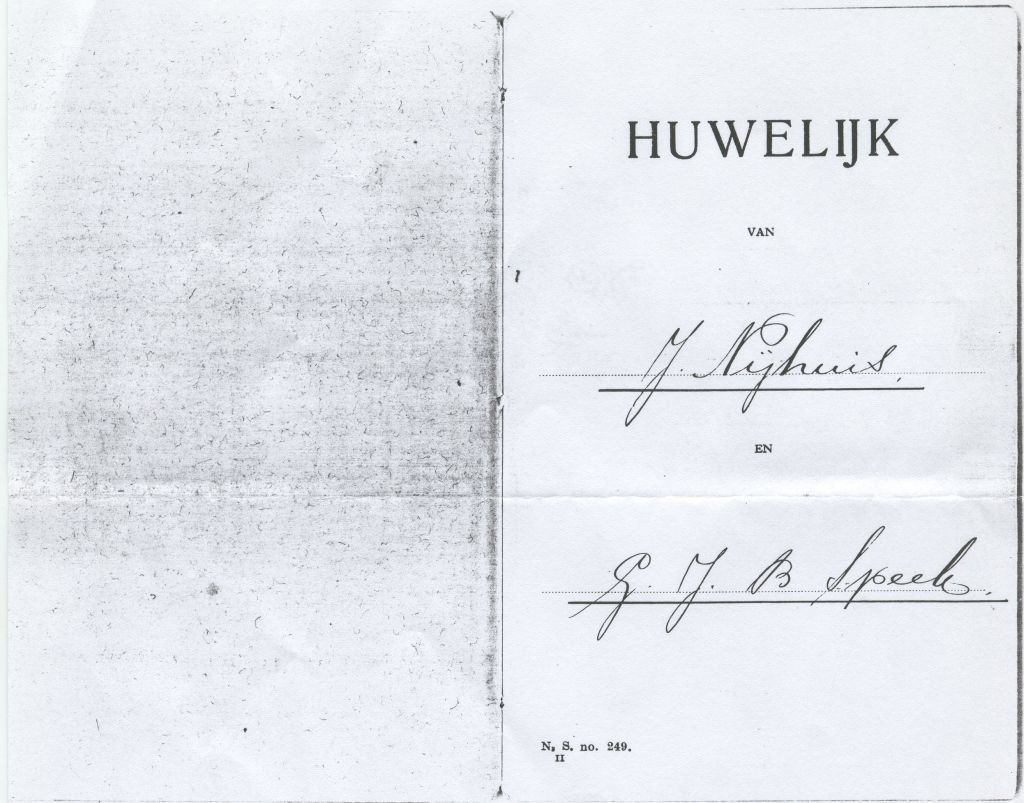 HUWELIJK
VAN
J. Nijhuis.
EN
G. J. B Speek.
N. S. no. 249.
II